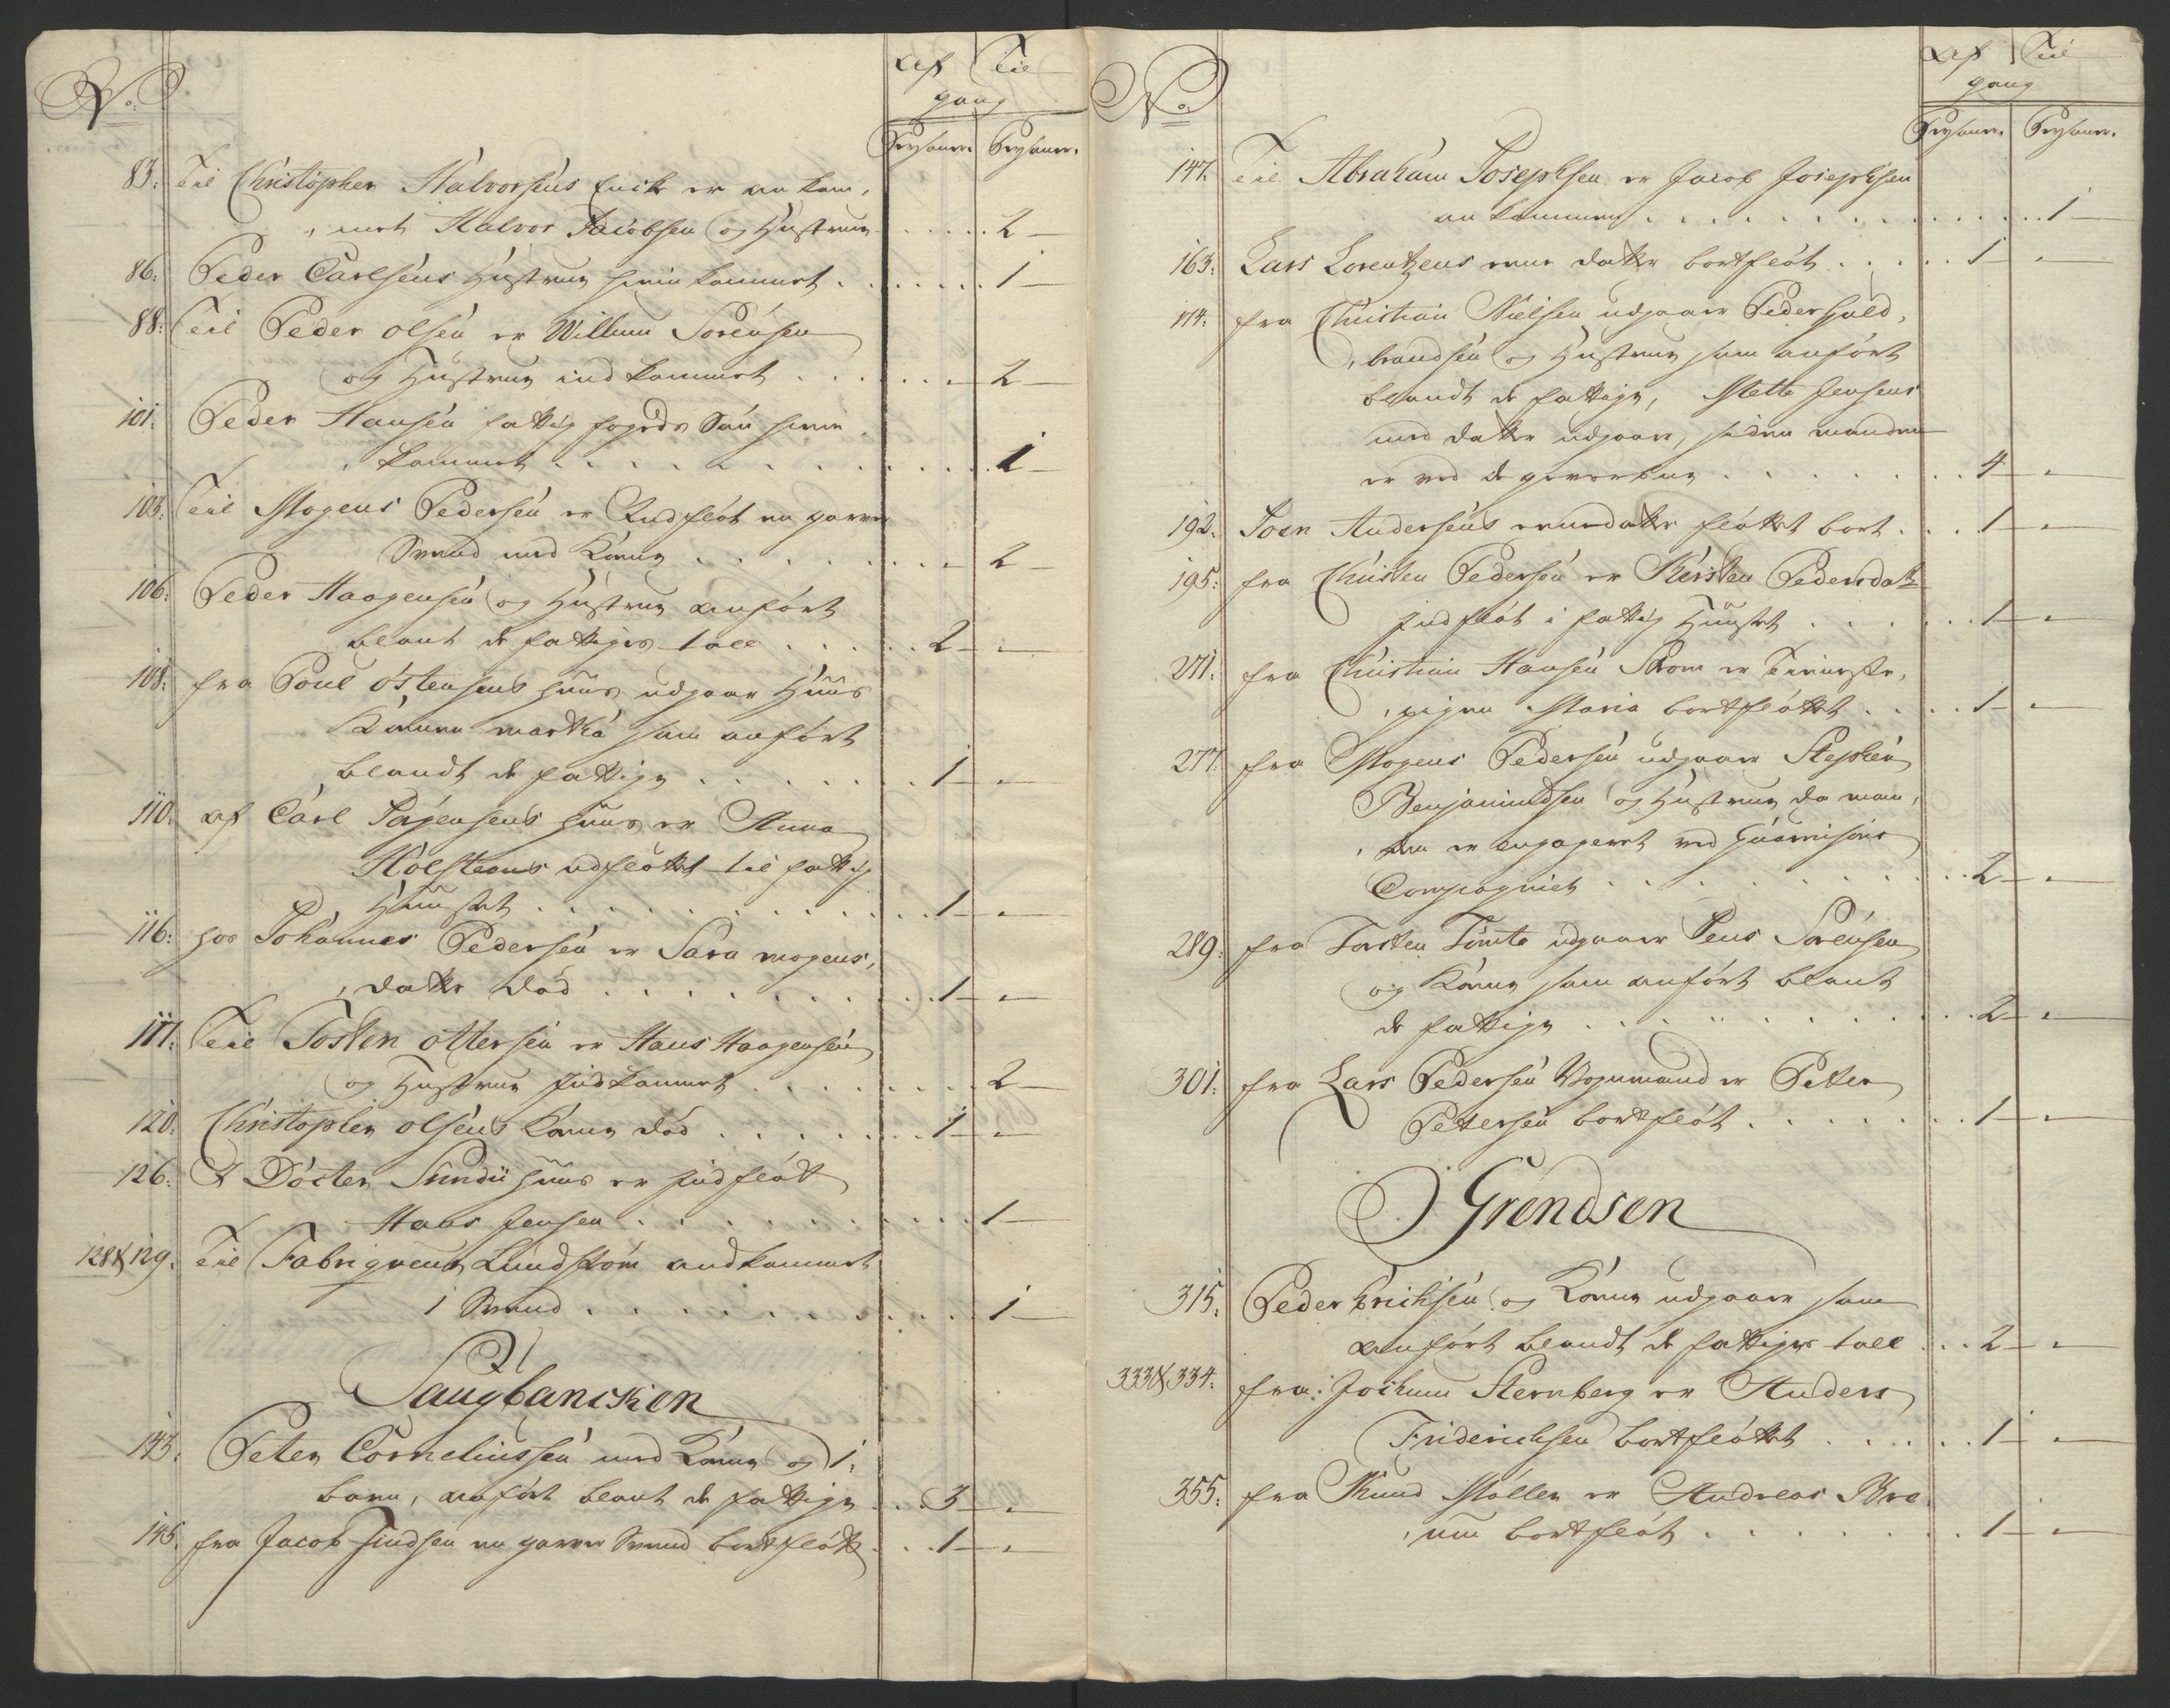 No.
Af Til
gang
Personer. Personer.
83. Til Christopher Halvorsens Encke er an kom,
met Halvor Jacobsen og Hustrue . . . . . 2 —
86. Peder Carlsens Hustrue herin kommet . . . . . . . 1 —
88. Til Peder Olsen er Willum Sörensen
og Hustrue ind kommet . . . . . . 2 —
101. Peder Hansen fattig fogeds Sön herin
kommet . . . . . . . . . . 1 —
103. Til Mogens Pedersen er Indflöt en garver
Svend med Konne . . . . . . . . 2 —
106. Peder Haagensen og Hustrue anfört
blant de fattiges tall . . . . . 2 —
108. fra Poul Östensens huus udgaar Huus
Konnen Martha som anfört
blandt de fattige . . . . . . . 1 —
110. af Carl Jörgensens huus er Anna
Holsteens udflöttet til fattig
Huuset . . . . . . . . . . . 1 —
116. hos Johannes Pedersen er Sara mogens,
datter död . . . . . . . . . 1 —
117. Til Tosten Ottersen er Hans Haagensen
og Hustrue Indkommet . . . . . . . 2 —
120. Christopher Olsens Konne död . . . . . . . 1 —
126. I Döcter huus er Indflöt
Hans Jensen . . . . . . . . . 1 —
128 & 129. Til Fabriqveur Lundström andkommet
1 Svend . . . . . . . . . . 1 —
Saugbanckien
143. Peter Corneliussen med Konne og 1.
barn, anfört blant de fattige . . . 3 —
145. fra Jacob Findsen en garver Svend bortflött . . . 1 —
No.
Af Til
gang
Personer. Personer.
147. Til Abraham Josephsen er Jacob Josephsen
an kommen . . . . . . . . . . . . 1 —
163. Lars Lorentzens datter bortflöt . . . . . 1 —
174. fra Christian Nielsen udgaar Peder Guld,
brandsen og Hustrue som anfört
blandt de fattige, Mette Jensens
med datter udgaar, siden manden
er ved de . . . . . . . 4 —
192. Joen Andersens datter flöttet bort . . . 1 —
195. fra Christen Pedersen er Kirsten Pedersdatt
Indflöt i fattig Huuset . . . . . . 1 —
271. fra Christian Hansen Strom er Tieniste,
pigen Maria bortflöttet . . . . 1 —
277. fra Mogens Pedersen udgaar Stephen
Benjamindsen og Hustrue da man,
den er engageret ved Guarnisons
Compagniet . . . . . . . . . . 2 —
289. fra Torsten Tömte udgaar Jens Sörensen
og Konne som anfört blant
de fattige . . . . . . . . . . . 2 —
301. fra Lars Pedersen Vognmand er Peter
Petersen bortflöt . . . . . . . 1 —
Grendsen
315. Peder Erichsen og Konne udgaar som
anfört blandt de fattiges tall . . . 2 —
333 & 334. fra Jochum Sternberg er Anders
Friderichsen bortflöttet . . . . . . 1 —
355. fra Knud Möller er Andreas Bre
um bortflöt . . . . . . . . 1 —